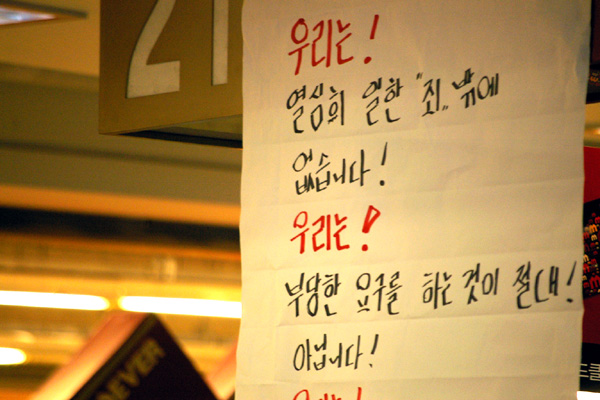 21
우리는!
열심히 일한 "죄„ 밖에
없습니다!
우리는!
부당한 요구를 하는것이 절대!
아닙니다!
EVER
드클